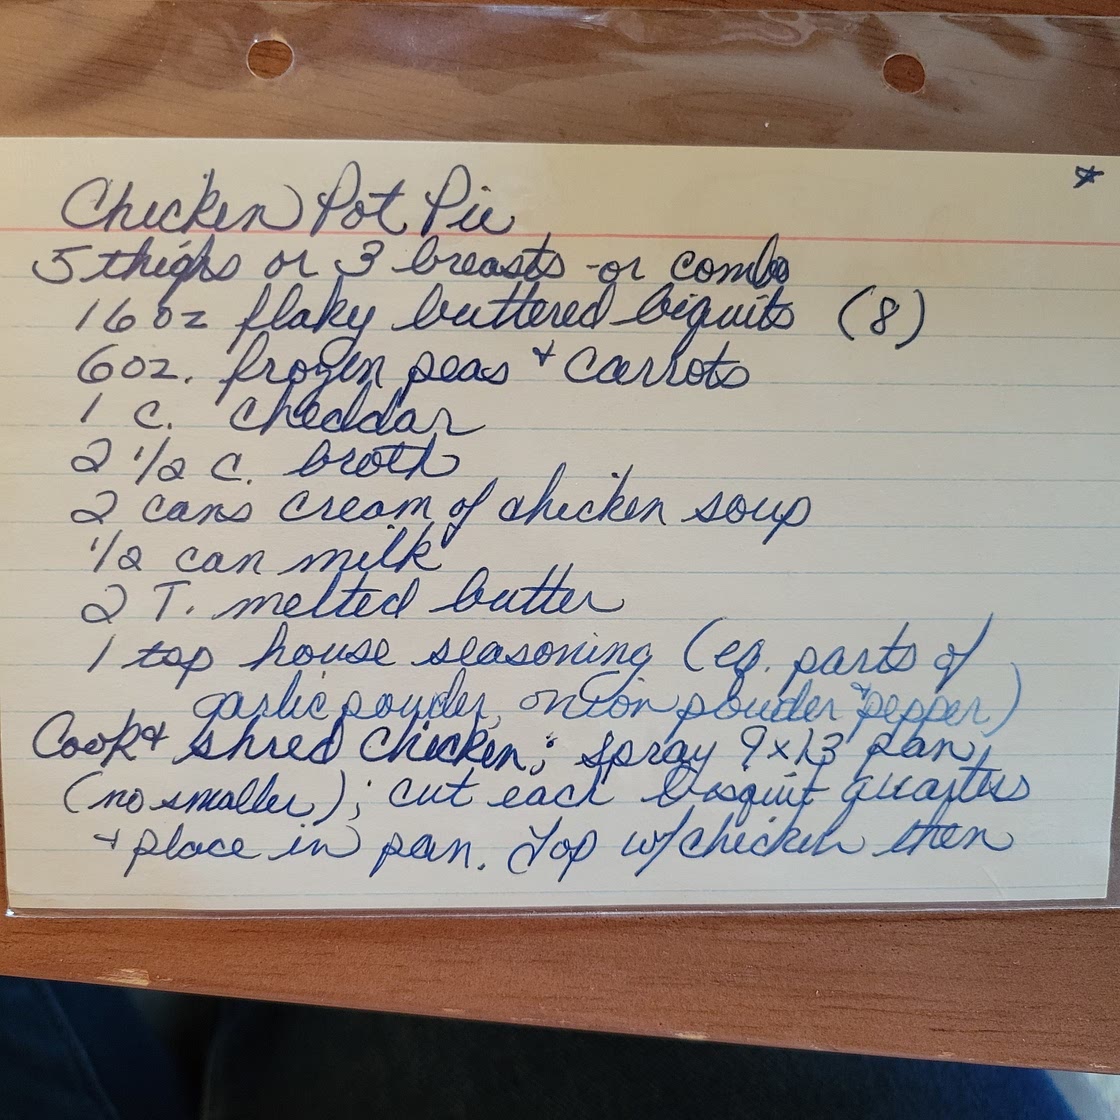 Chicken Pot Pie
5 thighs or 3 breasts -or combo
16 oz flaky buttered bisquits (8)
6 oz. frozen peas + carrots
1 c. cheddar
2 1/2 c. broth
2 cans cream of chicken soup
1/2 can milk
2 T. melted butter
1 tsp house seasoning (eq. parts of
garlic powder, onion powder + pepper)
Cook + shred chicken; spray 9x13 pan,
(no smaller); cut each bisquit quarters
+ place in pan. Top w/chicken then